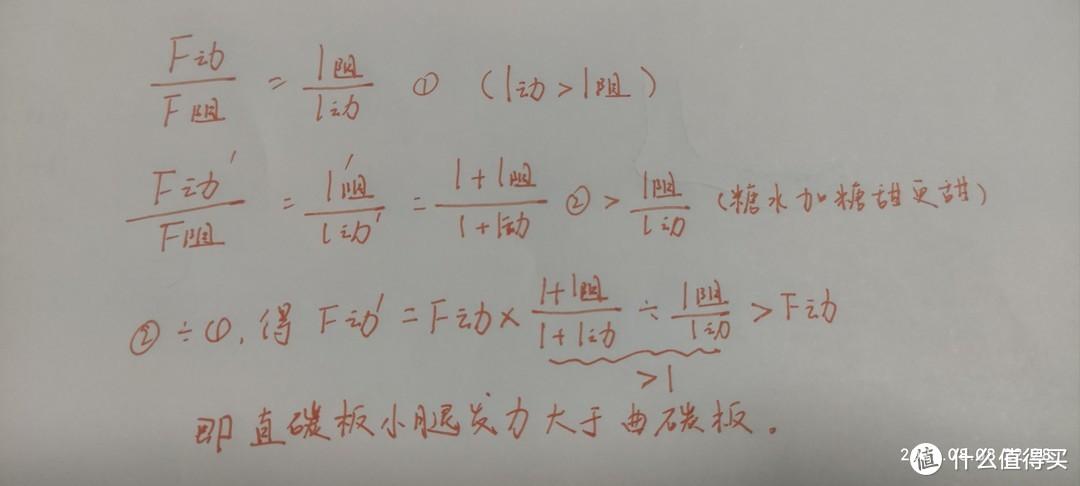 F动/F阻 = l阻/l动 ① (l动>l阻)
F动'/F阻 = l'阻/l动' = l+l阻/l+l动 ② > l阻/l动 (糖水加糖甜更甜)
②÷①,得 F动' = F动× l+l阻/l+l动 ÷ l阻/l动 > F动
>1
即直碳板小腿发力大于曲碳板。
值 什么值得买